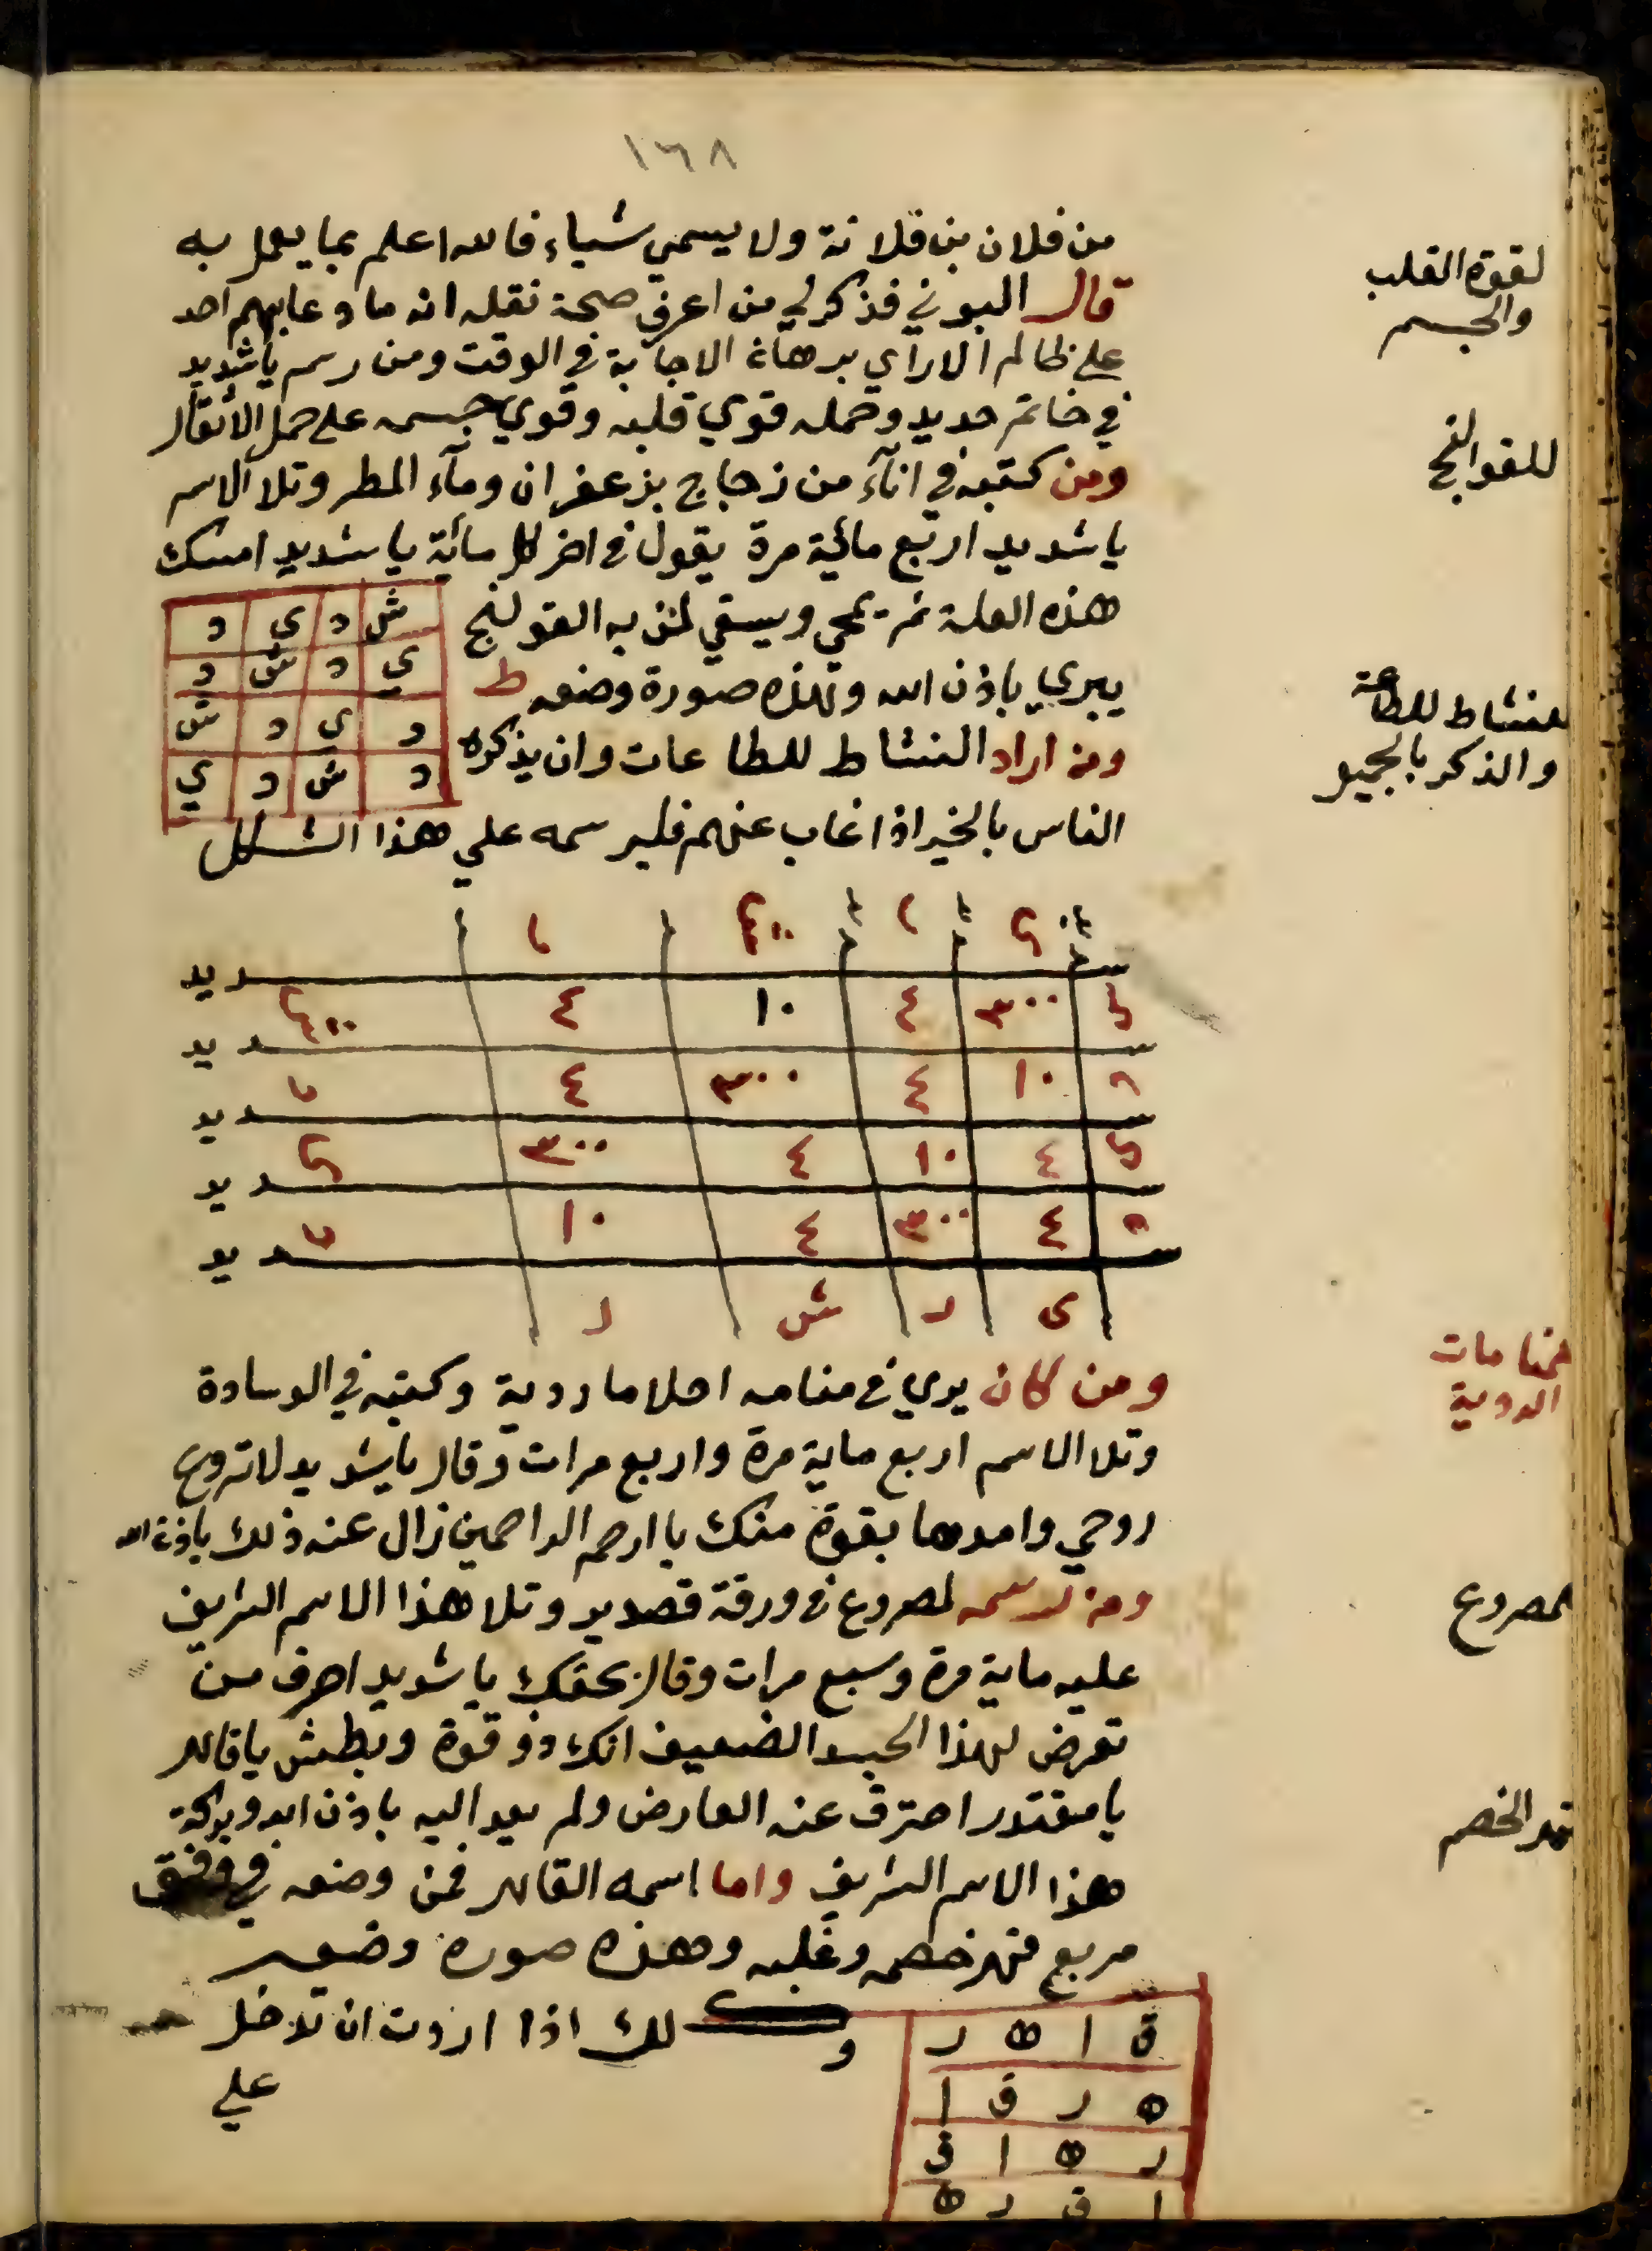 ١٦٨
من فلان بن فلانة ولا يسمي شياء فالله اعلم بما يعمل به
لقوة القلب
والجسم
قال البوني فذكر لي من اعرف صحة نقله انه ما دعا بهم احد
علي ظالم الا راي برهان الاجابة في الوقت ومن رسم يا شديد
في خاتم حديد وحمله قوي قلبه وقوي جسمه علي حمل الاثقال
للقوالنج
ومن كتبه في انآء من زجاج بزعفران ومآء المطر وتلا الاسم
يا شديد اربع مائية مرة يقول في اخر كل مائة يا شديد امسك
هذه العلة ثم يمحي ويسقي لمن به القولنج
يبري باذن الله وهذه صورة وضعه ط
ش د ي د
ي د ش د
د ي د ش
د ش د ي
للنشاط للطاعة
والذكر بالجميو
ومن اراد النشاط للطاعات وان يذكروه
الناس بالخير اذا غاب عنهم فليرسمه علي هذا الشكل
ديد
٣٠٠ ٤ ١٠ ٤
ديد
١٠ ٤ ٣٠٠ ٤
ديد
٤ ١٠ ٤ ٣٠٠
ديد
٤ ٣٠٠ ٤ ١٠
ديد
ى د ش د
للمنامات
الردية
ومن كان يري في منامه احلاما ردية وكتبه في الوسادة
وتلا الاسم اربع ماية مرة واربع مرات وقال يا شديد لا تروع
روحي وامدها بقوة منك يا ارحم الراحمين زال عنه ذلك باذن الله
لمصروع
ومن رسمه لمصروع في ورقة قصدير وتلا هذا الاسم الشريف
عليه ماية مرة وسبع مرات وقال بحقك يا شديد اصرف من
تعرض لهذا الجسد الضعيف انك ذو قوة وبطش يا قاهر
يا مقتدر احترق عنه العارض ولم يعد اليه باذن الله وبركة
قهر الخصم
هذا الاسم الشريف واما اسمه القاهر فمن وضعه في وفق
مربع قهر خصمه وغلبه وهذه صورة وضعه
ق ا ه ر
ه ر ق ا
ر ه ا ق
ا ق ر ه
وكذلك اذا اردت ان تدخل
علي